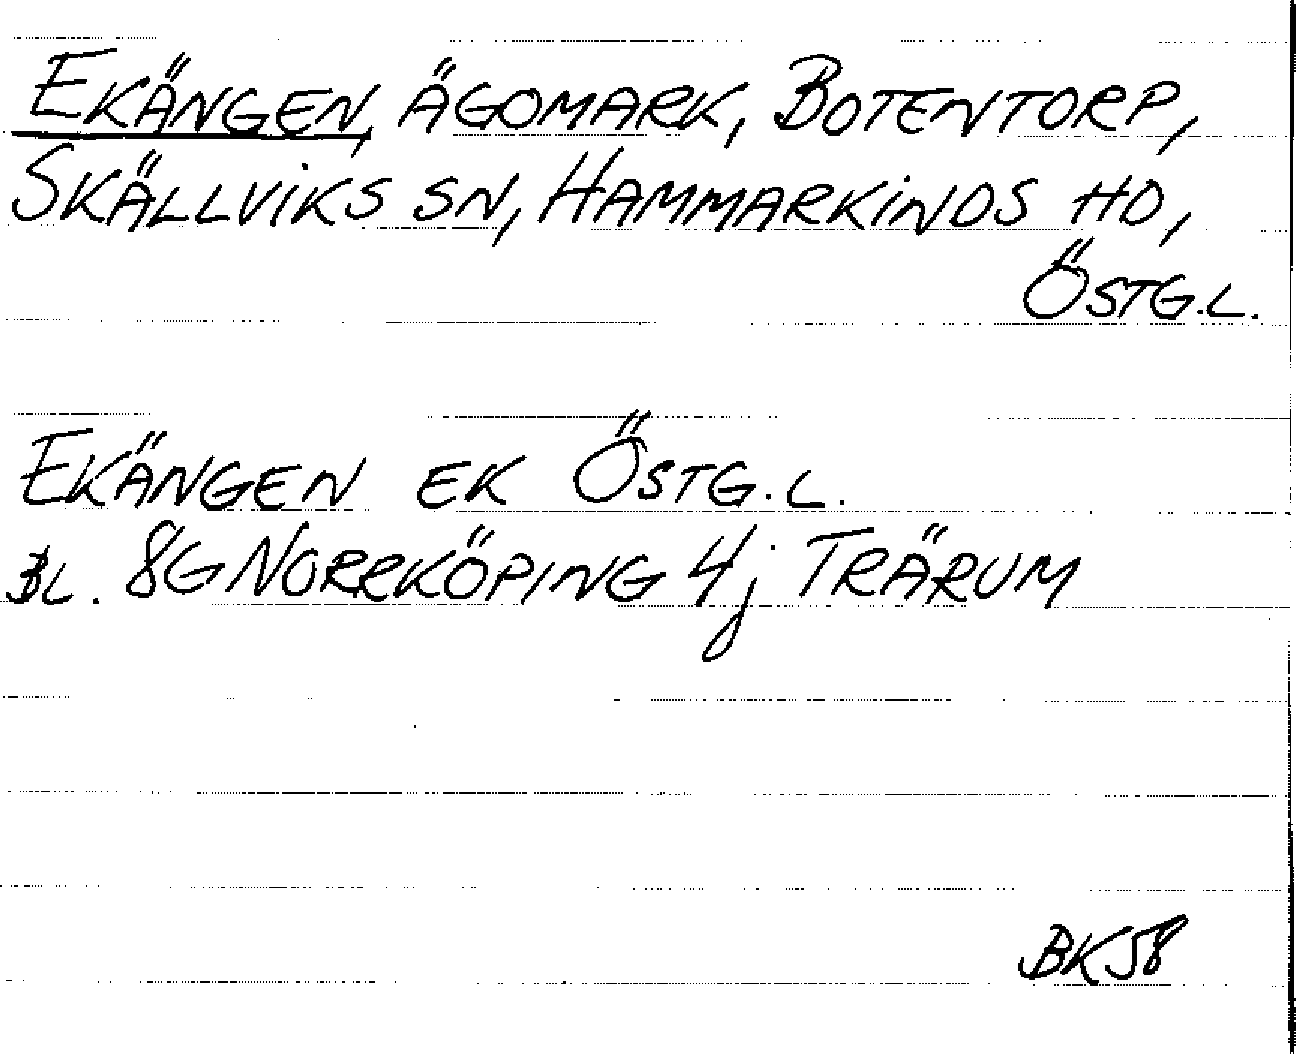 EKÄNGEN, ÄGOMARK, BOTENTORP,
SKÄLLVIKS SN, HAMMARKINDS HD,
ÖSTG.L.
EKÄNGEN EK ÖSTG.L.
BL. 8G NORRKÖPING 4j TRÄRUM
BK58